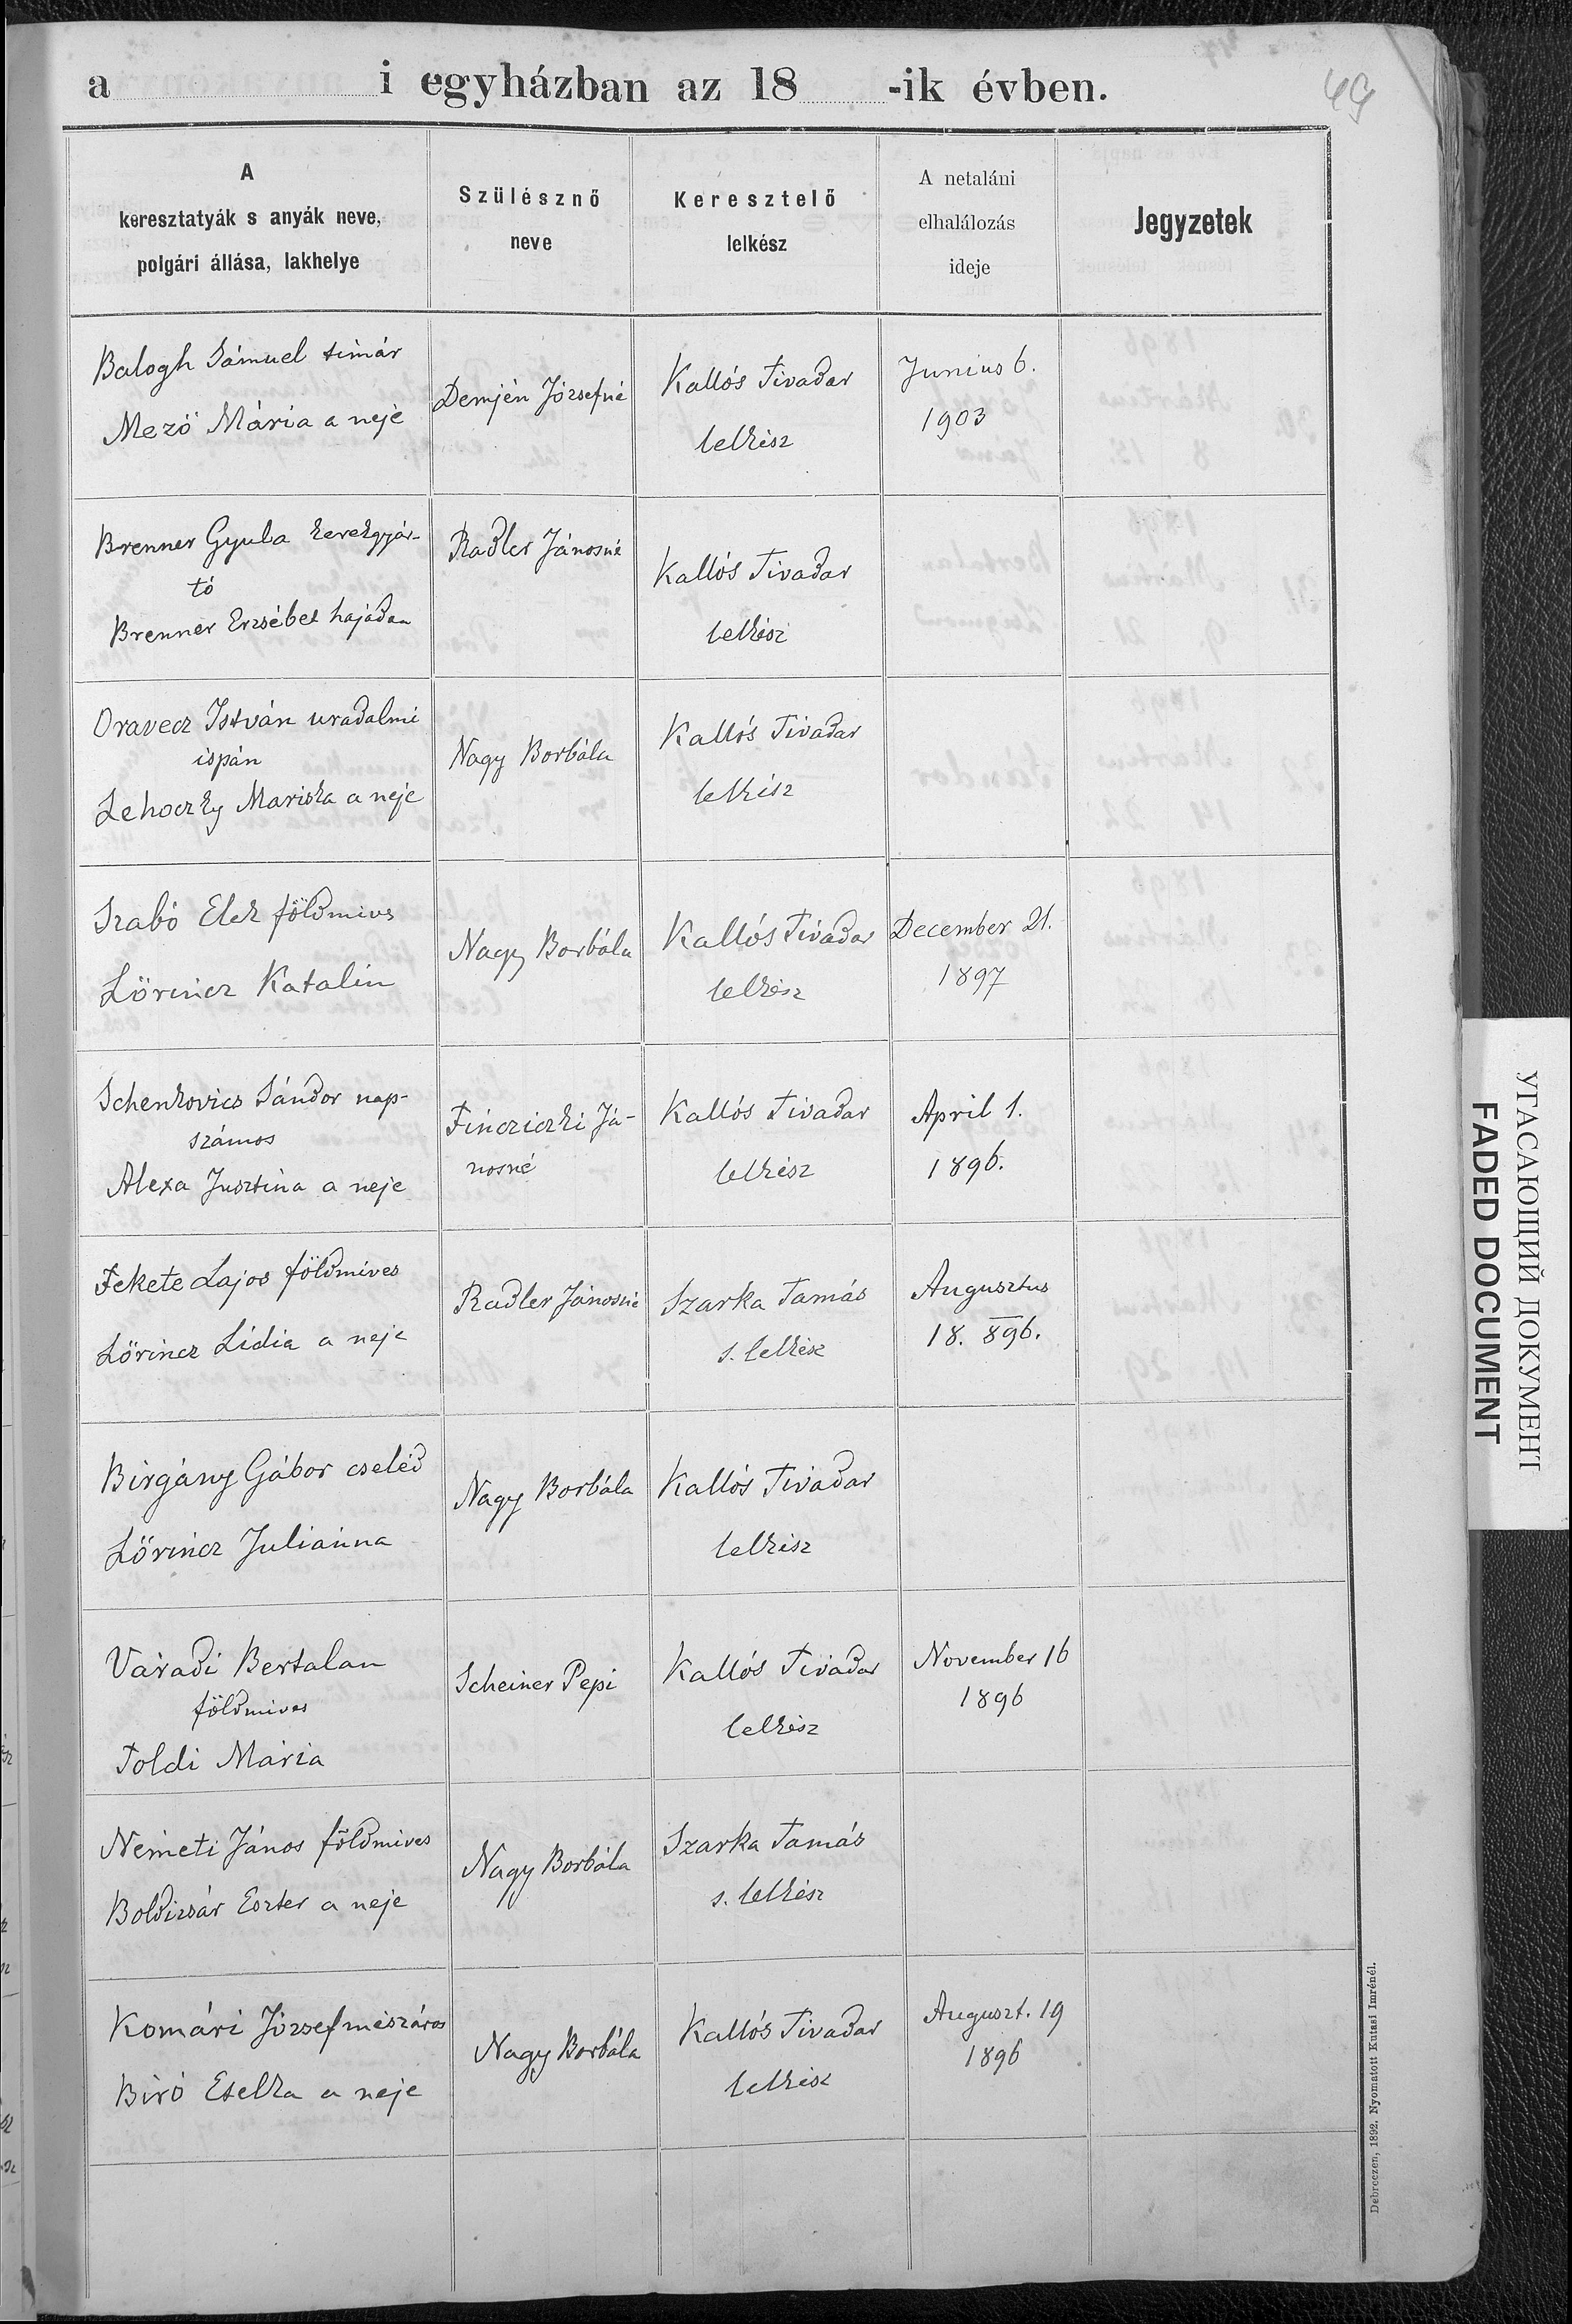 a i egyházban az 18 -ik évben.
49
A
keresztatyák s anyák neve,
polgári állása, lakhelye
Szülésznő
neve
Keresztelő
lelkész
A netaláni
elhalálozás
ideje
Jegyzetek
Balogh Sámuel timár
Mező Mária a neje
Demjén Józsefné
Kallós Tivadar
lelkész
Junius 6.
1903
Brenner Gyula kerekgyár-
tó
Brenner Erzsébet hajadon
Radler Jánosné
Kallós Tivadar
lelkész
Oravecz István uradalmi
ispán
Lehoczky Mariska a neje
Nagy Borbála
Kallós Tivadar
lelkész
Szabó Elek földmives
Lörincz Katalin
Nagy Borbála
Kallós Tivadar
lelkész
December 21.
1897
Schenkovics Sándor nap-
számos
Alexa Jusztina a neje
Fincziczki Já-
nosné
Kallós Tivadar
lelkész
April 1.
1896.
Fekete Lajos földmives
Lörincz Lidia a neje
Radler Jánosné
Szarka Tamás
s. lelkész
Augusztus
18. 896.
Birgány Gábor cseléd
Lörincz Juliánna
Nagy Borbála
Kallós Tivadar
lelkész
Váradi Bertalan
földmives
Toldi Mária
Scheiner Pepi
Kallós Tivadar
lelkész
November 16
1896
Németi János földmives
Boldizsár Eszter a neje
Nagy Borbála
Szarka Tamás
s. lelkész
Komári József mészáros
Biró Etelka a neje
Nagy Borbála
Kallós Tivadar
lelkész
Auguszt. 19
1896
Debreczen, 1892. Nyomatott Kutasi Imrénél.
УГАСАЮЩИЙ ДОКУМЕНТ
FADED DOCUMENT